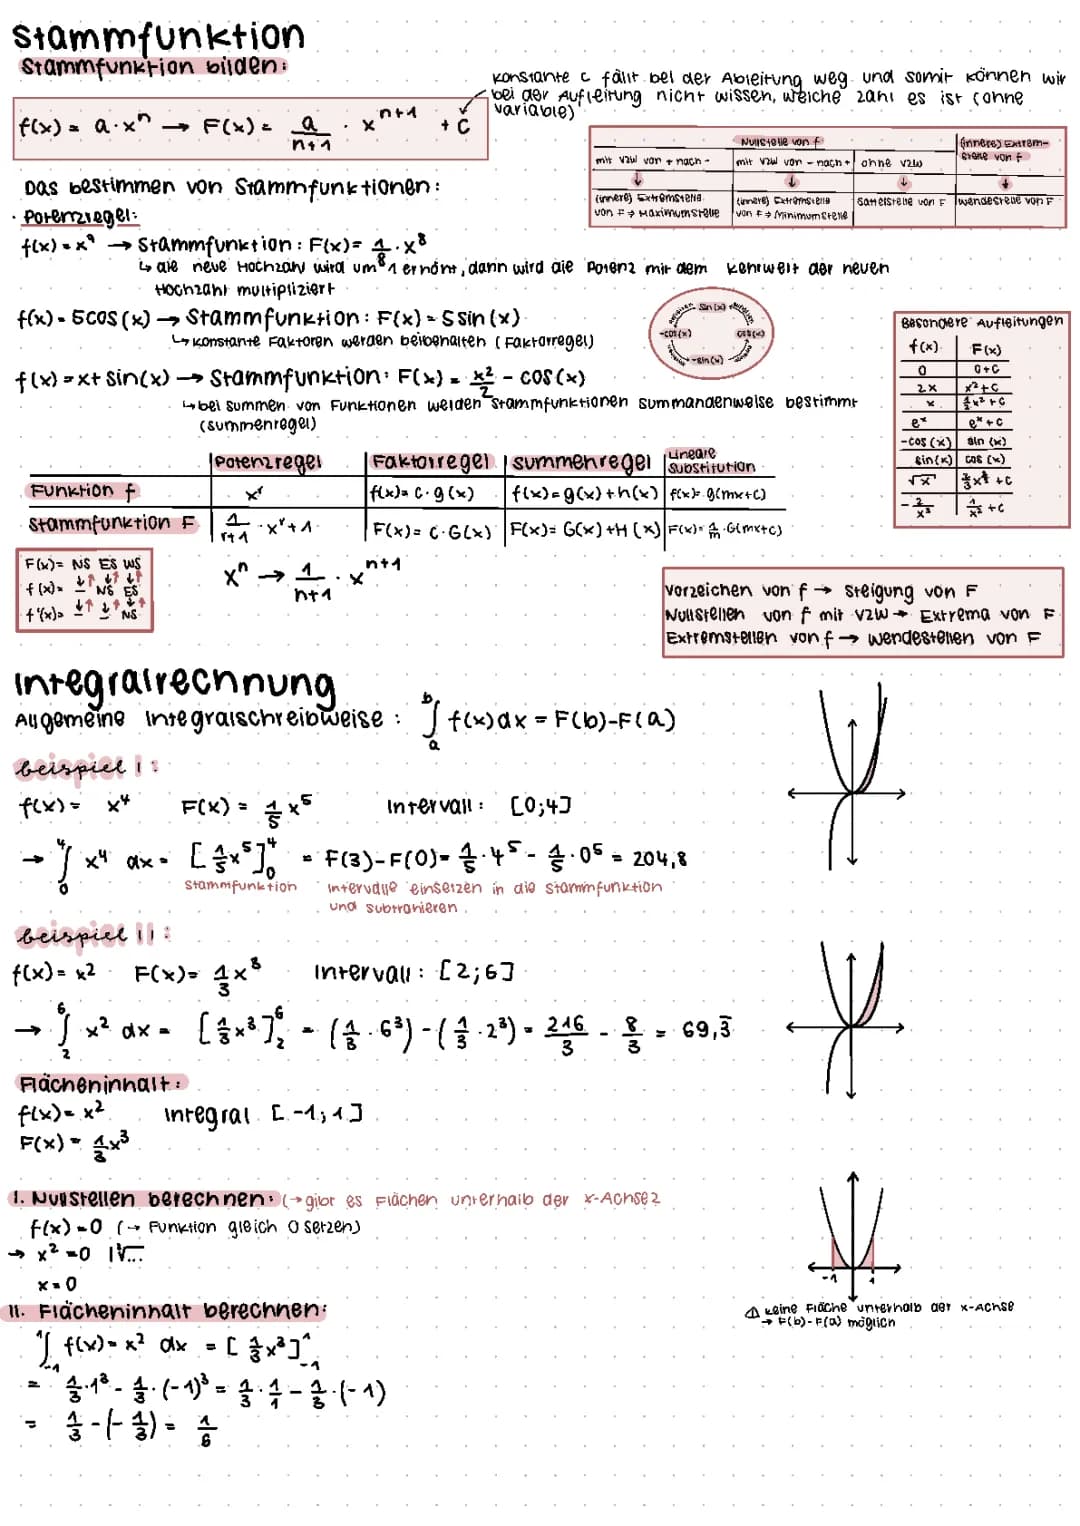 Stammfunktion
Stammfunktion bilden:
Konstante c fällt bei der Ableitung weg und somit können wir
bei der Aufleitung nicht wissen, welche Zahl es ist (ohne
Variable)
f(x) = a·xⁿ → F(x) = a/(n+1) · xⁿ⁺¹ + C
Nullstelle von f
(innere) Extrem-
stelle von f
mit VZW von + nach -
mit VZW von - nach +
ohne VZW
↓ ↓ ↓ ↓
(innere) Extremstelle
von F ⇒ Maximumstelle
(innere) Extremstelle
von F ⇒ Minimumstelle
Sattelstelle von F
Wendestelle von F
Das bestimmen von Stammfunktionen:
· Potenzregel:
f(x) = x⁷ → Stammfunktion: F(x) = 1/8 · x⁸
↳ die neue Hochzahl wird um 1 erhöht, dann wird die Potenz mit dem Kehrwert der neuen
Hochzahl multipliziert
f(x) = 5cos(x) → Stammfunktion: F(x) = 5sin(x)
↳ konstante Faktoren werden beibehalten (Faktorregel)
sin(x)
-cos(x) cos(x)
-sin(x)
f(x) = x+ sin(x) → Stammfunktion: F(x) = x²/2 - cos(x)
↳ bei Summen von Funktionen werden Stammfunktionen summandenweise bestimmt
(Summenregel)
Besondere Aufleitungen
f(x) F(x)
0 0+C
2x x²+C
x 1/2x²+C
eˣ eˣ+C
-cos(x) sin(x)
sin(x) cos(x)
√x 2/3x^(3/2) +C
-2/x³ 1/x² +C
Potenzregel Faktorregel Summenregel Lineare Substitution
Funktion f xʳ f(x)= c·g(x) f(x)=g(x)+h(x) f(x)= g(mx+c)
Stammfunktion F 1/(r+1) · xʳ+1 F(x)= C·G(x) F(x)= G(x)+H(x) F(x)= 1/m ·G(mx+c)
F(x)= NS ES WS
f(x)= NS ES
f'(x)= NS
xⁿ → 1/(n+1) · xⁿ⁺¹
Vorzeichen von f → Steigung von F
Nullstellen von f mit VZW → Extrema von F
Extremstellen von f → Wendestellen von F
Integralrechnung
Allgemeine Integralschreibweise: ∫ₐᵇ f(x)dx = F(b)-F(a)
beispiel I:
f(x) = x⁴ F(x) = 1/5 x⁵ Intervall: [0;4]
→ ∫₀⁴ x⁴ dx = [1/5x⁵]₀⁴ = F(3)-F(0)= 1/5 · 4⁵ - 1/5 · 0⁵ = 204,8
Stammfunktion
Intervalle einsetzen in die Stammfunktion
und subtrahieren.
beispiel II:
f(x) = x² F(x)= 1/3 x³ Intervall: [2;6]
→ ∫₂⁶ x² dx = [1/3x³]₂⁶ = (1/3 · 6³) - (1/3 · 2³) = 216/3 - 8/3 = 69,3̅
Flächeninhalt:
f(x) = x² Integral [-1; 1]
F(x) = 1/3x³
I. Nullstellen berechnen: (→ gibt es Flächen unterhalb der x-Achse?
f(x) = 0 (→ Funktion gleich 0 setzen)
→ x² = 0 |√...
x = 0
-1 1
⚠ keine Fläche unterhalb der x-Achse
→ F(b)-F(a) möglich
II. Flächeninhalt berechnen:
∫₋₁¹ f(x)= x² dx = [1/3x³]₋₁¹
= 1/3·1³ - 1/3·(-1)³ = 1/3·1/1 - 1/3·(-1)
= 1/3 - (-1/3) = 1/6